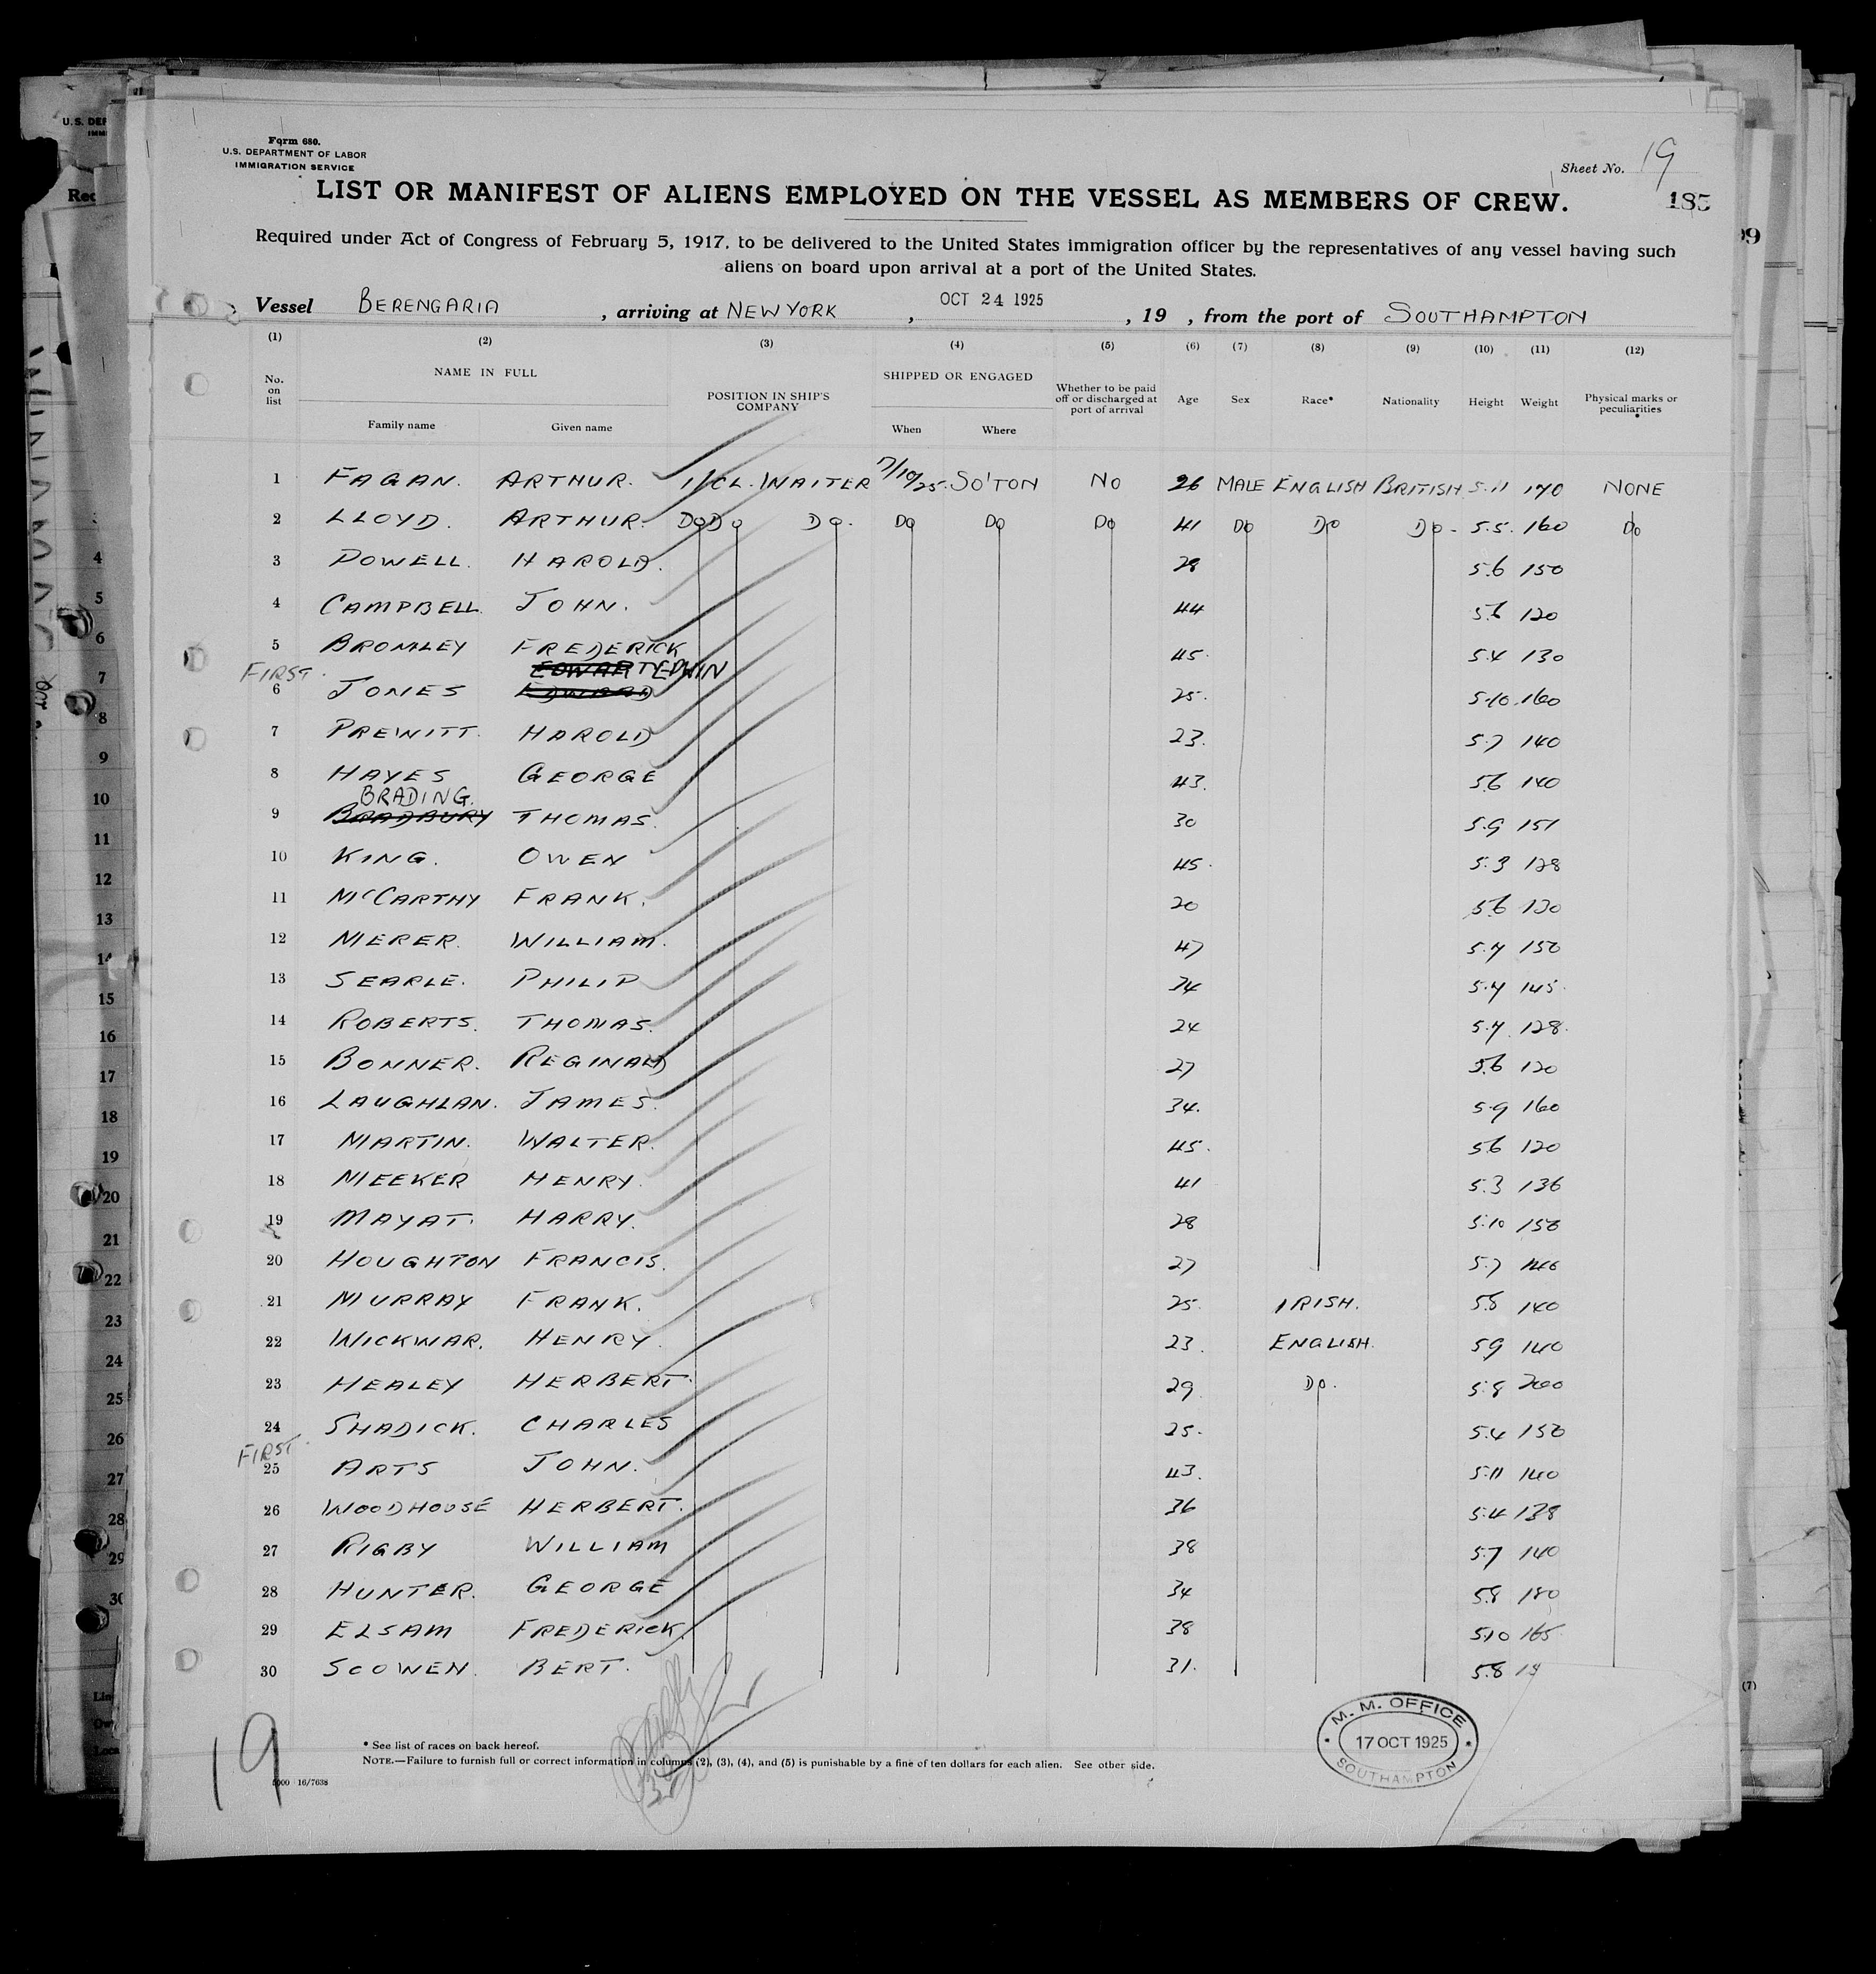 Form 680.
U.S. DEPARTMENT OF LABOR
IMMIGRATION SERVICE
Sheet No. 19
LIST OR MANIFEST OF ALIENS EMPLOYED ON THE VESSEL AS MEMBERS OF CREW.
185
Required under Act of Congress of February 5, 1917, to be delivered to the United States immigration officer by the representatives of any vessel having such
aliens on board upon arrival at a port of the United States.
Vessel BERENGARIA, arriving at NEW YORK, OCT 24 1925, 19 , from the port of SOUTHAMPTON
(1) (2) (3) (4) (5) (6) (7) (8) (9) (10) (11) (12)
No. on list
NAME IN FULL
Family name Given name
POSITION IN SHIP'S COMPANY
SHIPPED OR ENGAGED
When Where
Whether to be paid off or discharged at port of arrival
Age Sex Race* Nationality Height Weight
Physical marks or peculiarities
1 FAGAN. ARTHUR. 1/CL. WAITER 7/10/25 SO'TON NO 26 MALE ENGLISH BRITISH 5.11 170 NONE
2 LLOYD. ARTHUR. DO DO DO. DO DO DO 41 DO DO DO. 5.5. 160 DO
3 POWELL. HAROLD. 28 5.6 150
4 CAMPBELL. JOHN. 44 5.6 120
5 BROMLEY FREDERICK 45. 5.4 130
FIRST.
6 JONES EDWIN 25. 5.10. 160
7 PREWITT. HAROLD 23. 5.7 140
8 HAYES GEORGE 43. 5.6 140
BRADING.
9 BRADBURY THOMAS. 30 5.9 151
10 KING. OWEN 45. 5.3 128
11 McCARTHY FRANK. 20 5.6 130
12 MERER. WILLIAM. 47 5.7 150
13 SEARLE. PHILIP 34 5.7 145.
14 ROBERTS. THOMAS. 24 5.7 128.
15 BONNER. REGINALD 27 5.6 120
16 LAUGHLAN. JAMES. 34. 5.9 160
17 MARTIN. WALTER. 45. 5.6 120
18 MEEKER HENRY. 41 5.3 136
19 MAYAT. HARRY. 28 5.10 150
20 HOUGHTON FRANCIS. 27 5.7
21 MURRAY FRANK. 25. IRISH. 5.8 140
22 WICKWAR. HENRY. 23. ENGLISH. 5.9 140
23 HEALEY HERBERT. 29. DO. 5.8 200
24 SHADICK. CHARLES 25. 5.4 150
FIRST.
25 ARTS JOHN. 43. 5.11 140
26 WOODHOUSE HERBERT. 36 5.4 138
27 RIGBY WILLIAM 38 5.7 140
28 HUNTER. GEORGE 34 5.8 180
29 ELSAM FREDERICK. 38 5.10 165
30 SCOWEN. BERT. 31. 5.8
* See list of races on back hereof.
NOTE.—Failure to furnish full or correct information in columns (2), (3), (4), and (5) is punishable by a fine of ten dollars for each alien. See other side.
5000 16/7638
19
M. M. OFFICE
17 OCT 1925
SOUTHAMPTON